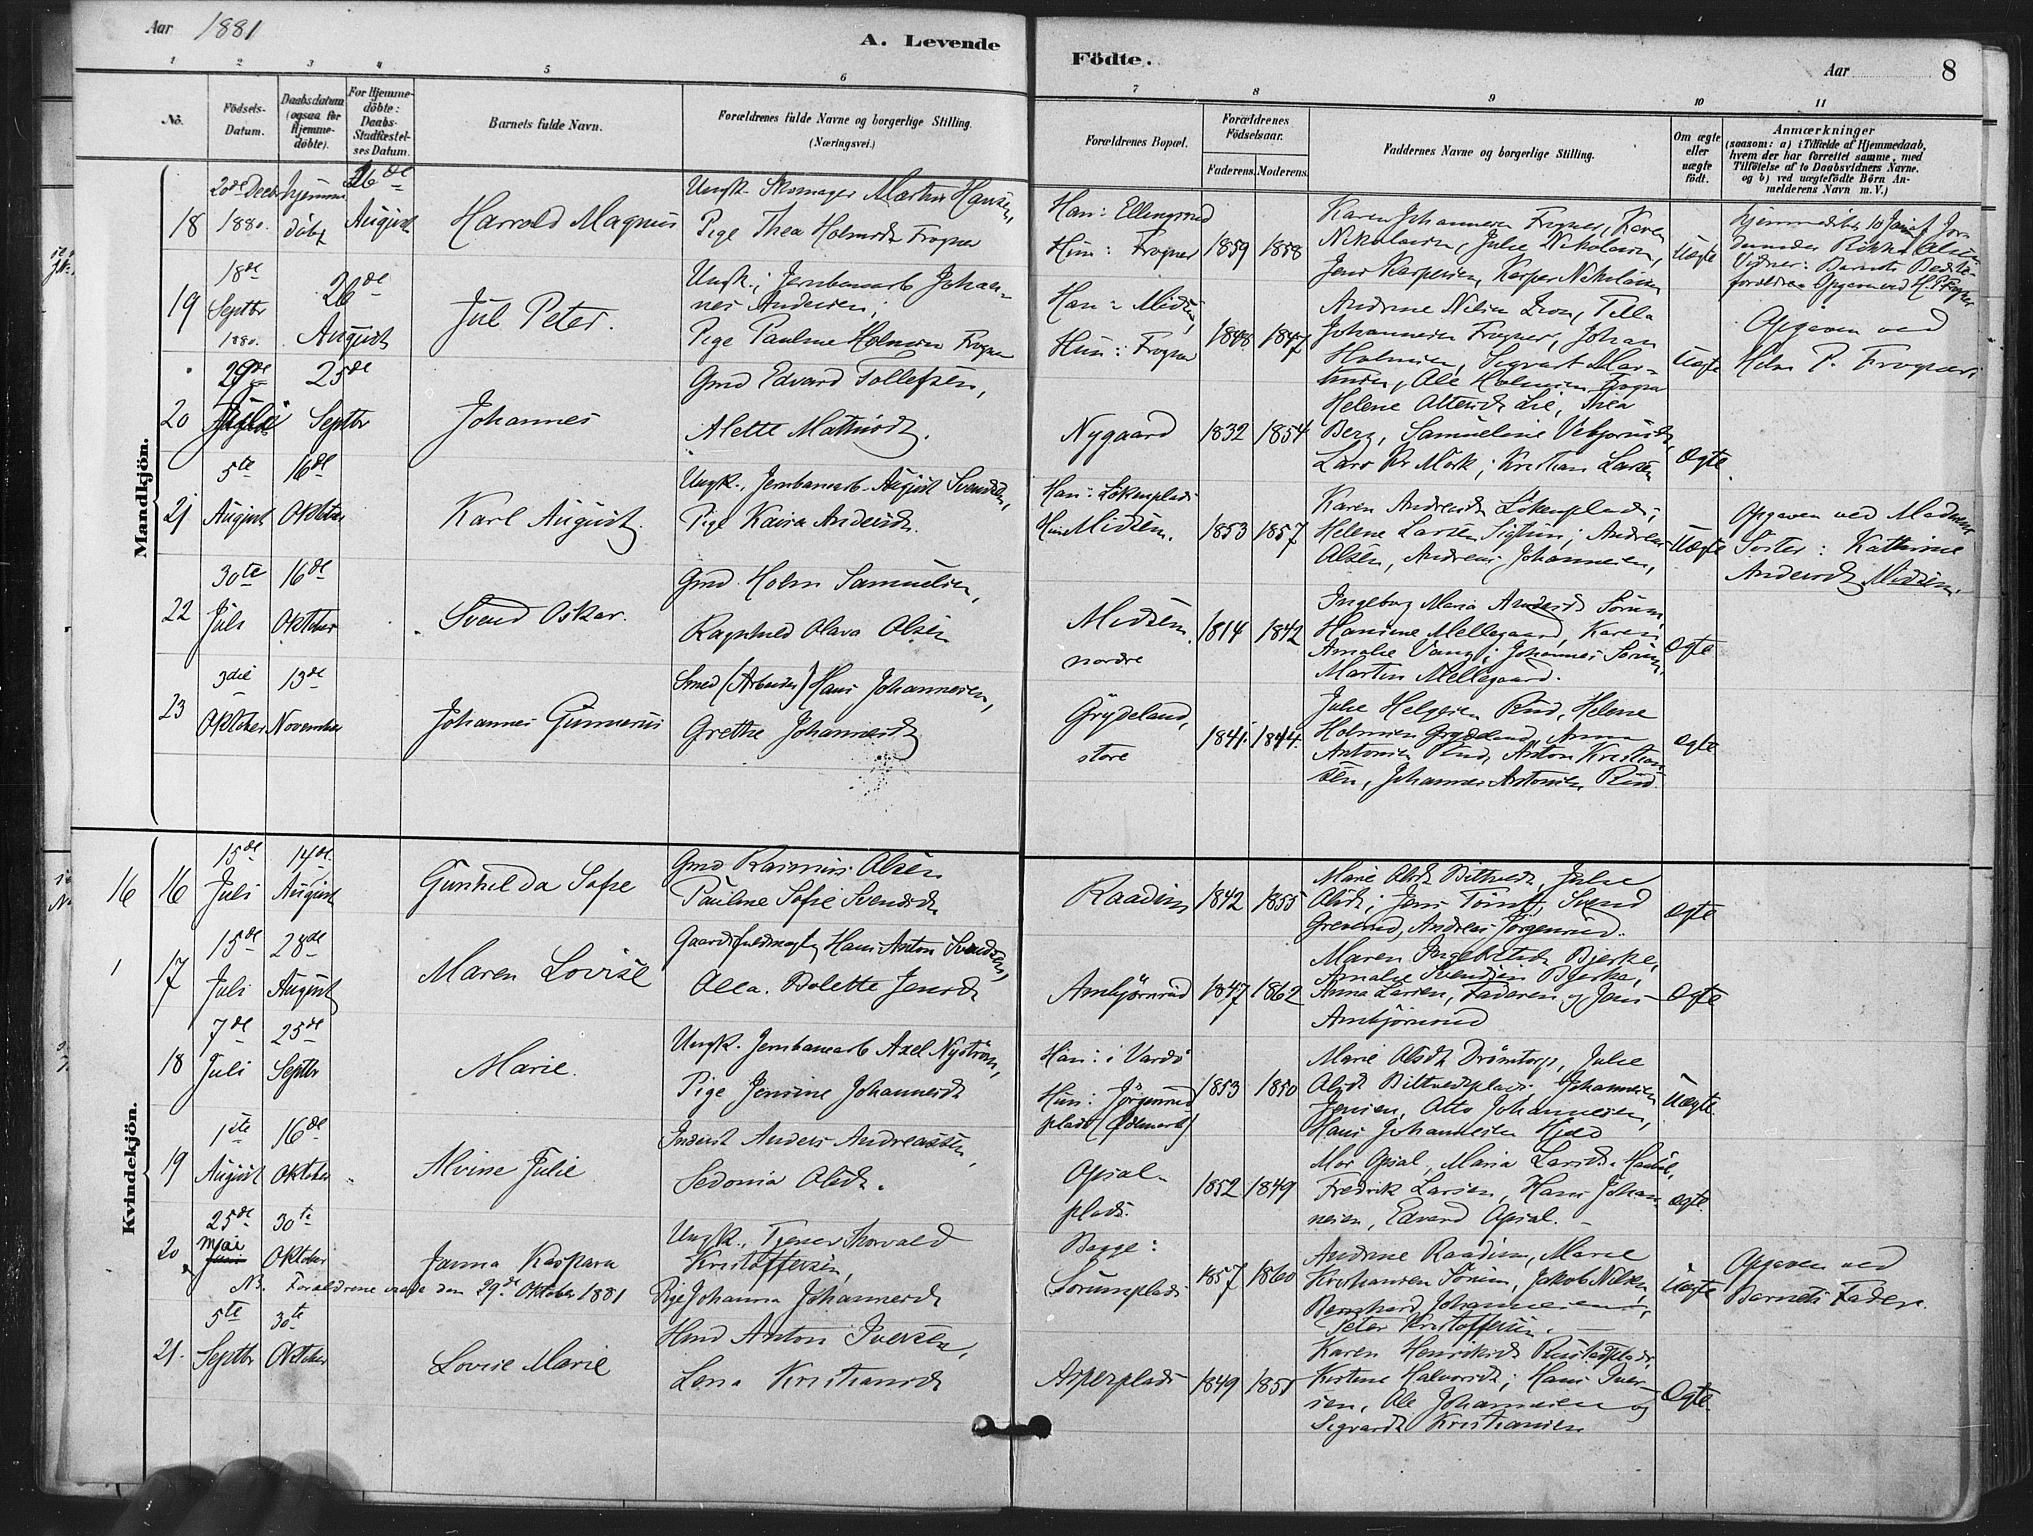 Aar 1881
A. Levende
Födte.
Aar
8
1 2 3 4 5 6 7 8 9 10 11
No.
Födsels-
Datum.
Daabsdatum
(ogsaa for
Hjemme-
döbte).
For Hjemme-
döbte:
Daabs-
Stadfæstel-
ses Datum.
Barnets fulde Navn.
Forældrenes fulde Navne og borgerlige Stilling.
(Næringsvei.)
Forældrenes Bopæl.
Forældrenes
Födselsaar.
Faderens.
Moderens.
Faddernes Navne og borgerlige Stilling.
Om ægte
eller
uægte
födt.
Anmærkninger
(saasom: a) i Tilfælde af Hjemmedaab,
hvem der har forrettet samme, med
Tilföielse af to Daabsvidners Navne.
og b) ved uægtefödte Börn An-
melderens Navn m. V.)
Mandkjön.
18
20de Decbr
1880.
hjemme
döbt
26de
August
Harrald Magnus
Ungk. Skomager Martin Hansen,
Pige Thea Holmsdt Frogner
Han: Ellingsrud
Hun: Frogner
1859
1858
Karen Johannesen Frogner, Karen
Nikolaisen, Julie Nikolaisen,
Jens Kaspersen, Kaspar Nikolaisen
Uægte
19
18de
Septbr
1880.
26de
August
Jul Peter.
Ungk.; Jernbanearb Johan-
nes Andersen;
Pige Pauline Holmsen Frogner
Han: Midsem,
Hun: Frogner
1848
1847
Andrine Nilsen
Johannesen Frogner, Johan
Holmsen, Segvart Mar-
tinsen, Ole Holmsen Frogner
Uægte
Opgiven ved
Holm P. Frogner
20
29de
Juli
25de
Septbr
Johannes
Gmd Edvard Tollefsen,
Alette Mathisdt.
Nygaard
1832
1854
Helene Olsen Lie, Thea
Berg, Samueline Vebjörnsdt,
Lars Kr Mörk; Kristian Larsen
Ægte
21
5te
August
16de
Oktober
Karl August.
Ungk., Jernbanearb. August Svendsen,
Pige Kaisa Andersdt.
Han: Lökenplads
Hun Midsem.
1853
1857
Karen Andersdt Lökenplads;
Helene Larsen Sigstun; Andreas
Olsen, Andreas Johannesen,
Uægte
Opgiven ved Moderens
Söster: Kathrine
Andersdt Midsem.
22
30te
Juli
16de
Oktober
Svend Oskar.
Gmd. Holm Samuelsen,
Ragnhild Olava Olsen
Midsem
nordre
1814
1842
Ingeborg Maria Andersdt Sörum,
Hansine Mellegaard, Karen
Amalie Vang; Johannes Sörum,
Martin Mellegaard.
Ægte
23
3die
Oktober
13de
November
Johannes Gunnerius
Smed (Arbeider) Hans Johannesen,
Grethe Johannesdt
Grydeland,
store
1841.
1844.
Julie Helgesen Rud, Helene
Holmsen Grydeland, Anna
Antonsen Rud, Anton Kristian-
sen, Johannes Antonsen Rud.
Ægte
Kvindekjön.
16
16
15de
Juli
14de
August
Gunhilda Sofie
Gmd Rasmus Olsen
Pauline Sofie Svendsdt
Raadim
1842
1855
Marie Olsdt Bittvedt, Julie
Olsdt; Jens, Svend
Grenerud, Andreas Jörgensrud.
Ægte
1
17
15de
Juli
28de
August
Maren Lovise
Gaardsfuldmægtig Hans Anton Svendsen,
Olea Bolette Jensdt
Ambjörnrud
1847
1862
Maren Ingebretsdt Bjerke,
Amalie Svendsen Bjerke,
Anna Larsen, Faderen og Jens
Ambjörnrud
Ægte
18
7de
Juli
25de
Septbr
Marie.
Ungk. Jernbanearb Axel Nyström,
Pige Jensine Johannesdt
Han: i Vardö
Hun: Jörgensrud
plads (Ödemark)
1853
1850
Marie Olsdt Drömtorp, Julie
Olsdt Bittvedtplads; Johannes
Jensen, Otto Johannesen,
Hans Johannesen Kjeld
Uægte
19
1ste
August
16de
Oktober
Alvine Julie
Inderst Anders Andreassen,
Sedonia Olsdt.
Opsal-
plads.
1852
1849
Mor Opsal, Maria Larsdt
Fredrik Larsen, Hans Johan-
nesen, Edvard Opsal.
Ægte
20
25de
Mai
30te
Oktober
Janna Kaspara
Ungk., Tjener Thorvald
Kristoffersen,
Pige Johanna Johannesdt
NB. Forældrene viede den 29de Oktober 1881
Bagge:
Sörumplads
1857
1860
Andrine Raadim, Marie
Kristiansen Sörum, Jakob Nilsen,
Bernhard Johannesen,
Peter Kristoffersen.
Uægte
Opgiven ved
Barnets Fader.
21.
5te
Septbr
30te
Oktober
Lovise Marie
Hmd Anton Iversen,
Lena Kristiansdt
Asperplads
1849
1851
Karen Henriksdt Rustadplads,
Kirstine Halvorsdt; Hans Iver-
sen, Ole Johannesen og
Segvardt Kristiansen
Ægte.